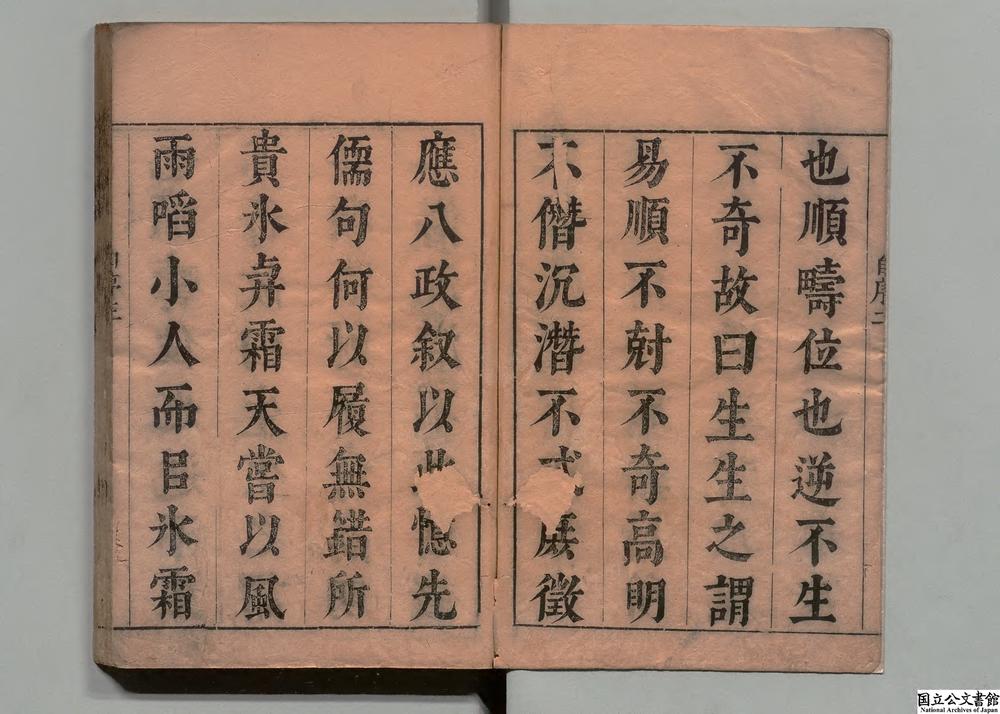 也順疇位也逆不生
不奇故曰生生之謂
易順不尅不奇高明
不僭沉潛不忒庻徵
應八政叙以此憶先
儒句何以履無錯所
貴氷弃霜天當以風
雨㗖小人而曰氷霜
国立公文書館
National Archives of Japan